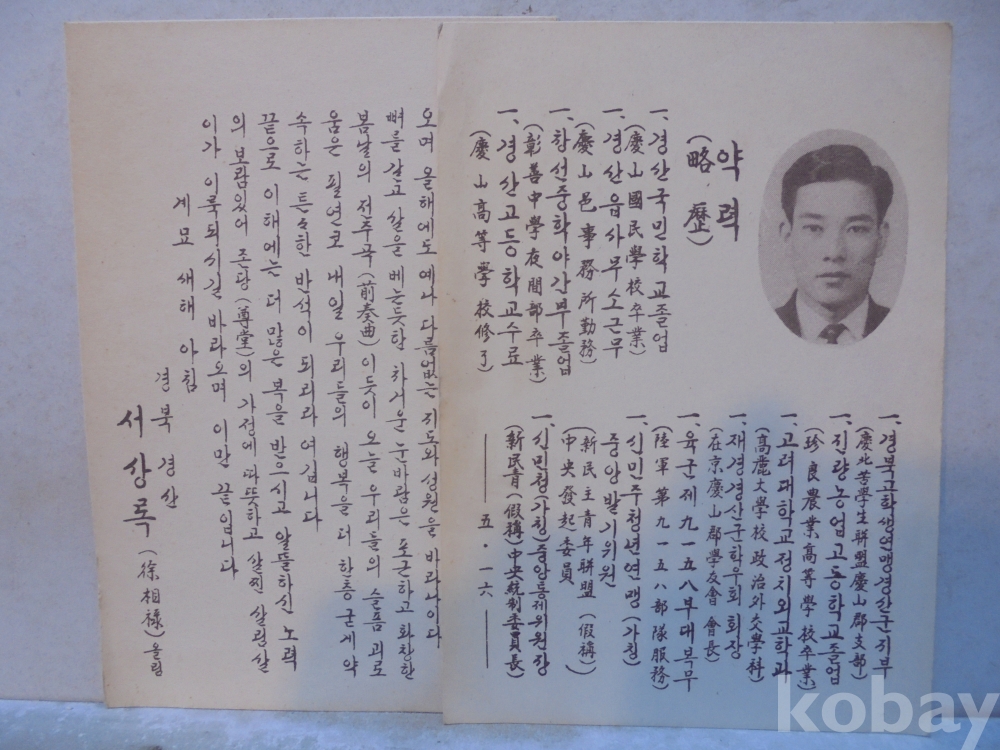 약력
(略歷)
一、경산국민학교졸업
(慶山國民學校卒業)
一、경산읍사무소근무
(慶山邑事務所勤務)
一、창선중학야간부졸업
(彰善中學夜間部卒業)
一、경산고등학교수료
(慶山高等學校修了)
一、경북고학생연맹경산군지부
(慶北苦學生聯盟慶山郡支部)
一、진량농업고등학교졸업
(珍良農業高等學校卒業)
一、고려대학교정치외교학과
(高麗大學校政治外交學科)
一、재경경산군학우회 회장
(在京慶山郡學友會 會長)
一、육군제九一五八부대복무
(陸軍第九一五八部隊服務)
一、신민주청년연맹(가칭)
중앙발기위원
(新民主青年聯盟(假稱)
中央發起委員)
一、신민청(가칭)중앙통제위원장
(新民青(假稱)中央統制委員長)
—— 五·一六 ——
오며 올해에도 예나 다름없는 지도와 성원을 바라나이다
뼈를 갈고 살을 베는듯한 차거운 눈바람은 포근하고 화창한
봄날의 전주곡(前奏曲)이듯이 오늘 우리들의 슬픔 괴로
움은 필연코 내일 우리들의 행복을 더 한층 굳게 약
속하는 튼튼한 반석이 되리라 여깁니다
끝으로 이해에는 더 많은 복을 받으시고 알뜰하신 노력
의 보람있어 존당(尊堂)의 가정에 따뜻하고 살찐 살림살
이가 이룩되시길 바라오며 이만 끝입니다
계묘 새해 아침
경북 경산
서상록(徐相祿)올림
kobay